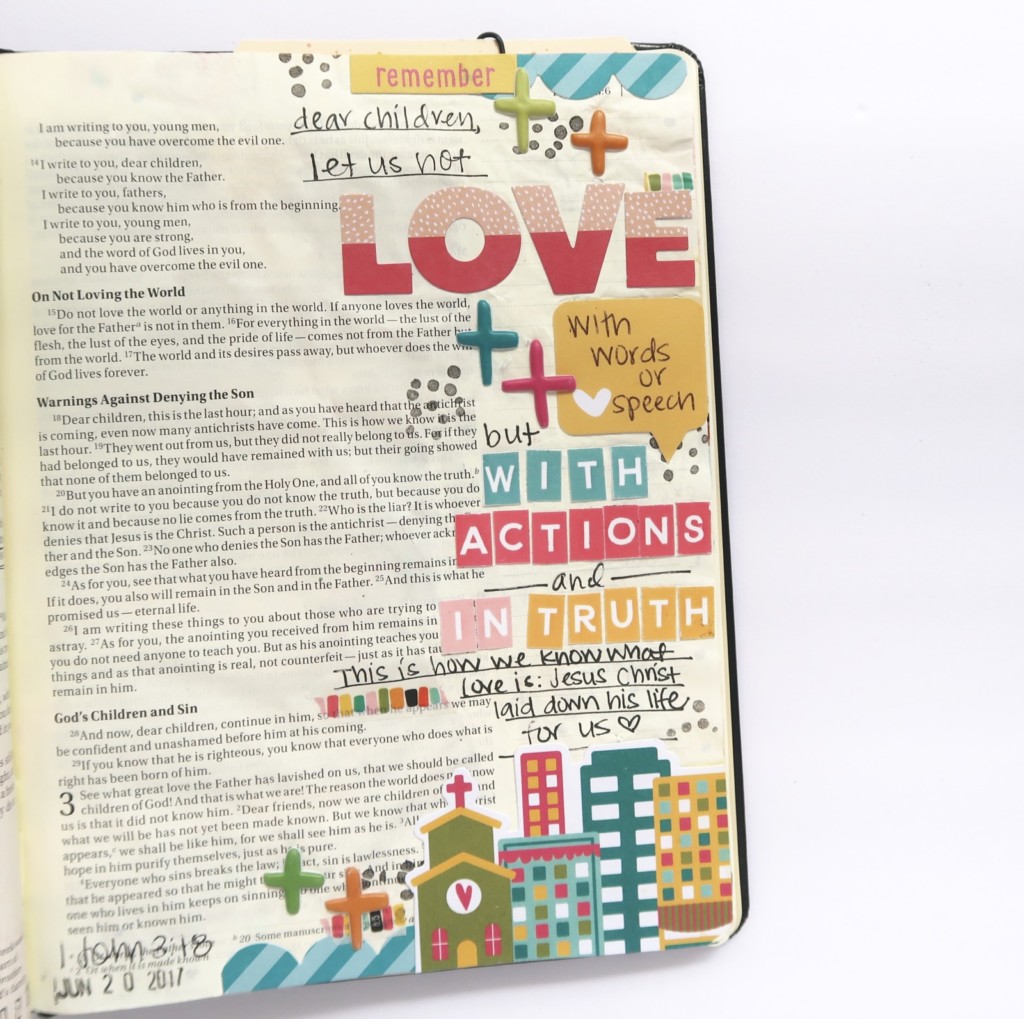 remember
dear children,
let us not
LOVE
with
words
or
speech
but
WITH
ACTIONS
and
IN TRUTH
This is how we know what
love is: Jesus Christ
laid down his life
for us
I am writing to you, young men,
because you have overcome the evil one.
14 I write to you, dear children,
because you know the Father.
I write to you, fathers,
because you know him who is from the beginning.
I write to you, young men,
because you are strong,
and the word of God lives in you,
and you have overcome the evil one.
On Not Loving the World
15 Do not love the world or anything in the world. If anyone loves the world,
love for the Father a is not in them. 16 For everything in the world—the lust of the
flesh, the lust of the eyes, and the pride of life—comes not from the Father but
from the world. 17 The world and its desires pass away, but whoever does the
of God lives forever.
Warnings Against Denying the Son
18 Dear children, this is the last hour; and as you have heard that the antichrist
is coming, even now many antichrists have come. This is how we know it is the
last hour. 19 They went out from us, but they did not really belong to us. For if they
had belonged to us, they would have remained with us; but their going showed
that none of them belonged to us.
20 But you have an anointing from the Holy One, and all of you know the truth. b
21 I do not write to you because you do not know the truth, but because you do
know it and because no lie comes from the truth. 22 Who is the liar? It is whoever
denies that Jesus is the Christ. Such a person is the antichrist—denying the
ther and the Son. 23 No one who denies the Son has the Father; whoever
edges the Son has the Father also.
24 As for you, see that what you have heard from the beginning remains in
If it does, you also will remain in the Son and in the Father. 25 And this is what he
promised us—eternal life.
26 I am writing these things to you about those who are trying to
astray. 27 As for you, the anointing you received from him remains in
you do not need anyone to teach you. But as his anointing teaches you
things and as that anointing is real, not counterfeit—just as it has
remain in him.
God's Children and Sin
28 And now, dear children, continue in him, so that when he appears we may
be confident and unashamed before him at his coming.
29 If you know that he is righteous, you know that everyone who does what is
right has been born of him.
3 See what great love the Father has lavished on us, that we should be called
children of God! And that is what we are! The reason the world does not know
us is that it did not know him. 2 Dear friends, now we are children of and
what we will be has not yet been made known. But we know that
appears, c we shall be like him, for we shall see him as he is. 3
hope in him purify themselves, just as he is pure.
4 Everyone who sins breaks the law; sin is lawlessness.
that he appeared so that he might And in
one who lives in him keeps on sinning.
seen him or known him.
b 20 Some
1 John 3:18
JUN 20 2017